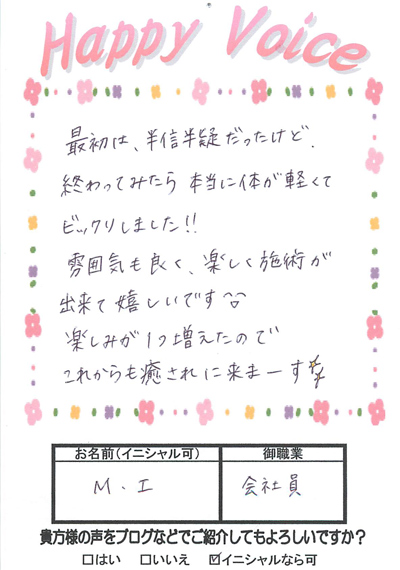 Happy Voice
最初は、半信半疑だったけど、
終わってみたら 本当に体が軽くて
ビックリしました!!
雰囲気も良く、楽しく施術が
出来て嬉しいです
楽しみが1つ増えたので
これからも癒されに来まーす
お名前(イニシャル可) 御職業
M.I 会社員
貴方様の声をブログなどでご紹介してもよろしいですか?
□はい □いいえ ☑イニシャルなら可